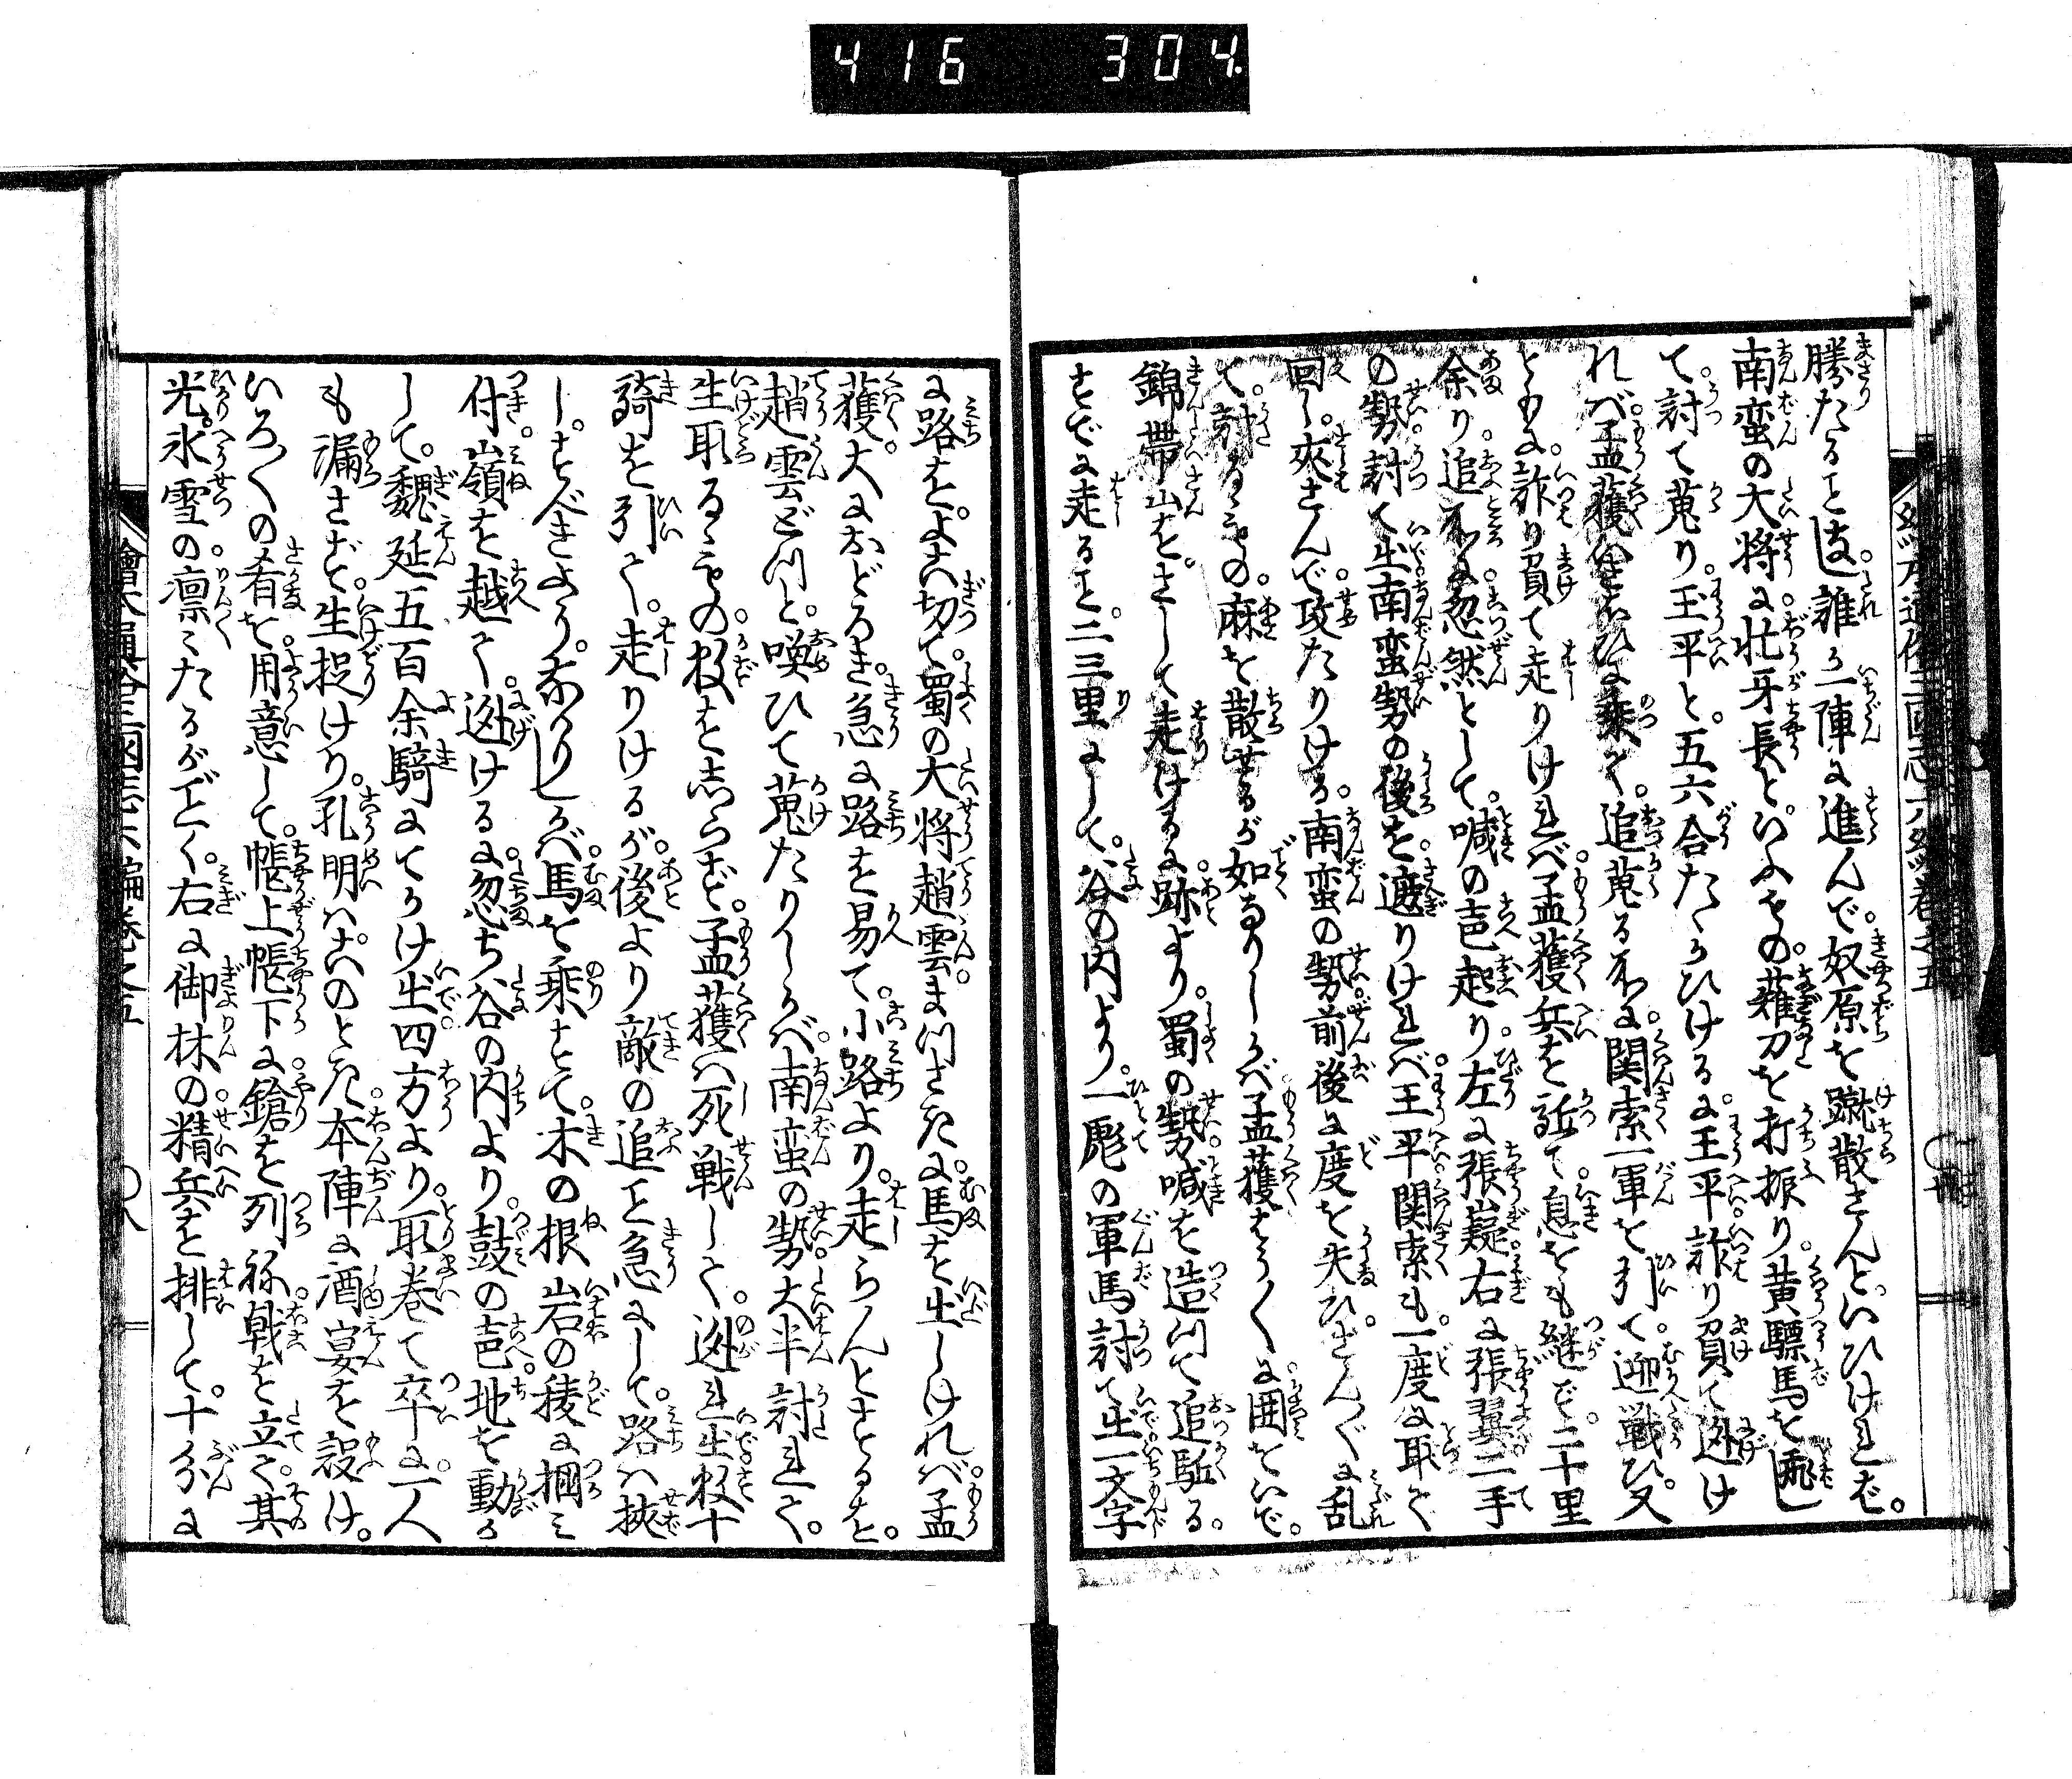 416 304.
勝たること遠し誰か一陣に進んで。奴原を蹴散さんといひければ。
南蛮の大将に忙牙長といふもの。薙刀を打振り。黄驃馬を乗出し
て。討て蒐り王平と。五六合たゝかひける。に王平詐り負て迯け
れバ。孟獲勢ひに乗て。追蒐る所に。関索一軍を引て。迎戦ひ。又
ともに詐り負て走りければ。孟獲兵を駈て。息をも継で。二十里
余り。追所に。忽然として。喊の声起り左に張嶷。右に張翼二手
の勢。討て出。南蛮勢の後を。遮りければ。王平関索も。一度に取て
回し。夾さんで。攻たりける。南蛮の勢。前後に度を失ひ。さん〴〵に乱
て。討るゝもの。麻を散せるが如なりしかバ。孟獲やう〳〵に。囲をいで。
錦帯山を。さして走ける。に。跡より。蜀の勢。喊を造つて追駈る。
すでに走ること。二三里にして。谷の内より。一彪の軍馬討て出。一文字
に路を。よこ切て。蜀の大将趙雲まつさきに。馬を出しけれバ。孟
獲。大におどろき。急に路を易て。小路より。走らんとするを。
趙雲どつと。喚ひて蒐たりしかバ。南蛮の勢。大半討れて。
生取るゝもの。数をしらず。孟獲ハ死戦して。迯れ出。数十
騎を引て。走りけるが。後より敵の追こと急にして。路ハ狭
し。すべきよう。なかりしかバ。馬を乗すて。木の根岩の稜に掴み
付。嶺を越て。迯ける。に忽ち谷の内より。鼓の声。地を動か
して。魏延五百余騎にてかけ出。四方より。取巻て卒に。一人
も漏さず。生捉けり。孔明ハこのとき。本陣に酒宴を設け。
いろ〳〵の肴を。用意して。帳上帳下に。鎗を列ね。戟を立て。其
光。氷雪の。凛〻たるがごとく。右に御林の。精兵を排して。十分に
繪本通俗三國志六編卷之五
八